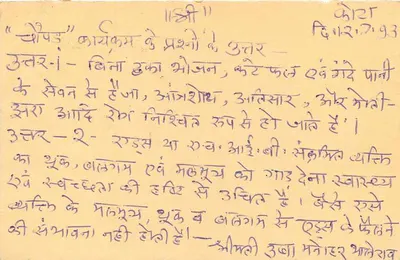 ॥श्री॥
कोटा
दि ११.२.९३
"चौपड़" कार्यक्रम के प्रश्नों के उत्तर-
उत्तर-१- बिना ढका भोजन, कटे फल एवं गंदे पानी
के सेवन से हैजा, आंत्रशोथ, अतिसार, और मोती-
झरा आदि रोग निश्चित रूप से हो जाते हैं।
उत्तर-२- एड्स या एच.आई.वी. संक्रमित व्यक्ति
का थूक, बलगम एवं मलमूत्र को गाड़ देना स्वास्थ्य
एवं स्वच्छता की दृष्टि से उचित है। वैसे एसे
व्यक्ति के मलमूत्र, थूक व बलगम से एड्स के फैलने
की संभावना नही होती है।-श्रीमती उषा मनोहर भालेराव